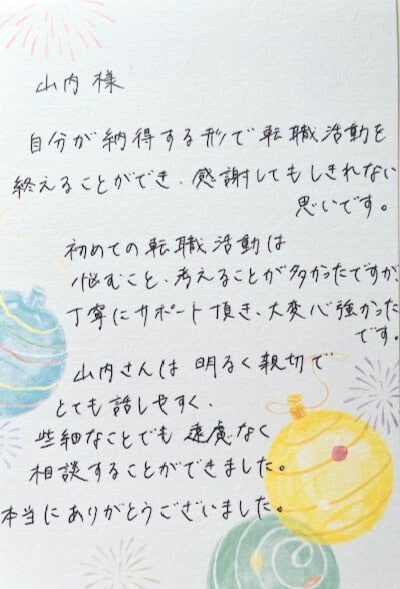 山内様
自分が納得する形で転職活動を
終えることができ、感謝してもしきれない
思いです。
初めての転職活動は
悩むこと、考えることが多かったですが、
丁寧にサポート頂き、大変心強かった
です。
山内さんは明るく親切で
とても話しやすく、
些細なことでも遠慮なく
相談することができました。
本当にありがとうございました。